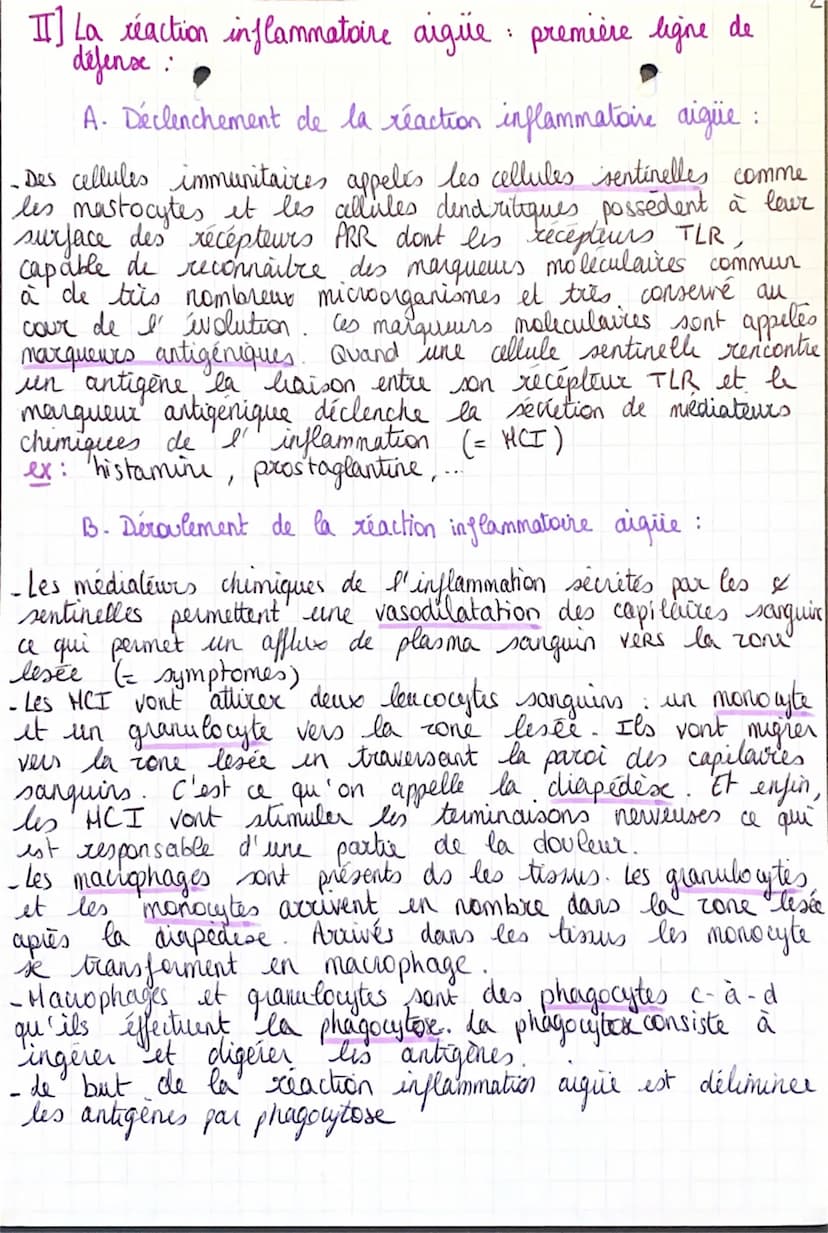 II] La réaction inflammatoire aigüe : première ligne de
défense :
A. Déclenchement de la réaction inflammatoire aigüe :
- Des cellules immunitaires appelés les cellules sentinelles comme
les mastocytes et les cellules dendritiques possèdent à leur
surface des récépteurs PRR dont les récépteurs TLR,
capable de reconnaître des marqueurs moléculaires commun
à de très nombreux microorganismes et très conservé au
cour de l'évolution. Ces marqueurs moleculaires sont appelés
marqueurs antigéniques. Quand une cellule sentinelle rencontre
un antigène la liaison entre son récépteur TLR et le
marqueur antigénique déclenche la sécrétion de médiateurs
chimiques de l'inflammation (= MCI)
ex : histamine, prostaglantine, ...
B. Déroulement de la réaction inflammatoire aigüe :
- Les médiateurs chimiques de l'inflammation sécrétés par les
sentinelles permettent une vasodilatation des capilaires sanguin
ce qui permet un afflux de plasma sanguin vers la zone
lesée (= symptomes)
- Les MCI vont attirer deux leucocytes sanguins : un monocyte
et un granulocyte vers la zone lesée. Ils vont migrer
vers la zone lesée en traversant la paroi des capilaires
sanguins. C'est ce qu'on appelle la diapédèse. Et enfin,
les MCI vont stimuler les terminaisons nerveuses ce qui
est responsable d'une partie de la douleur.
- Les macrophages sont présents ds les tissus. Les granulocytes
et les monocytes arrivent en nombre dans la zone lesée
après la diapédèse. Arrivés dans les tissus les monocyte
se transforment en macrophage.
- Macrophages et granulocytes sont des phagocytes c-à-d
qu'ils éffectuent la phagocytose. La phagocytose consiste à
ingérer et digérer les antigènes.
- Le but de la réaction inflammation aigüe est déliminer
les antigènes par phagocytose